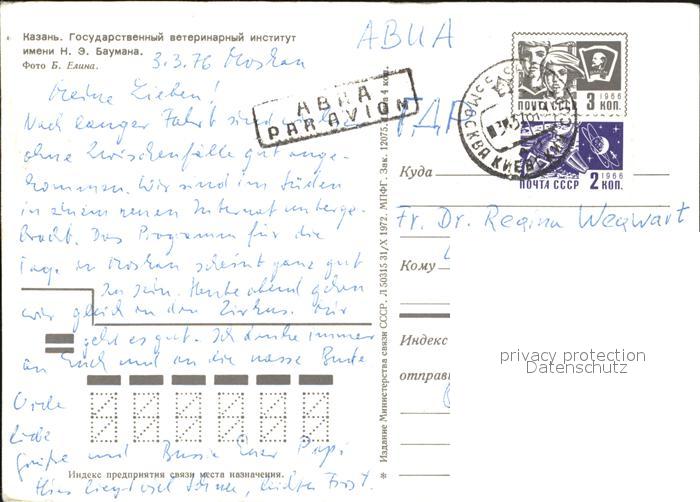 Казань. Государственный ветеринарный институт
имени Н. Э. Баумана.
Фото Б. Елина.
3.3.76 Moskau
АВИА
Meine Lieben!
Nach langer Fahrt sind wir
ohne Zwischenfälle gut ange-
kommen. Wir sind im Süden
in einem neuen Internat unterge-
bracht. Das Programm für die
Tage in Moskau scheint ganz gut
zu sein. Heute abend gehen
wir gleich in den Zirkus. Mir
geht es gut. Ich denke immer
an Euch und an die
Viele
liebe
Grüße und Bussis Euer Papi
Hier liegt viel Schnee, leichter Frost.
АВИА
PAR AVION
ГДР
МОСКВА КИЕВСКИЙ
1966
ПОЧТА СССР 3 КОП.
1966
ПОЧТА СССР 2 КОП.
Куда
Fr. Dr. Regina Wegwart
Кому
Индекс
отправи
privacy protection
Datenschutz
Издание Министерства связи СССР. Л 50315 31/X 1972. МПФГ. Зак. 12075. Цена 4 коп.
Индекс предприятия связи места назначения.